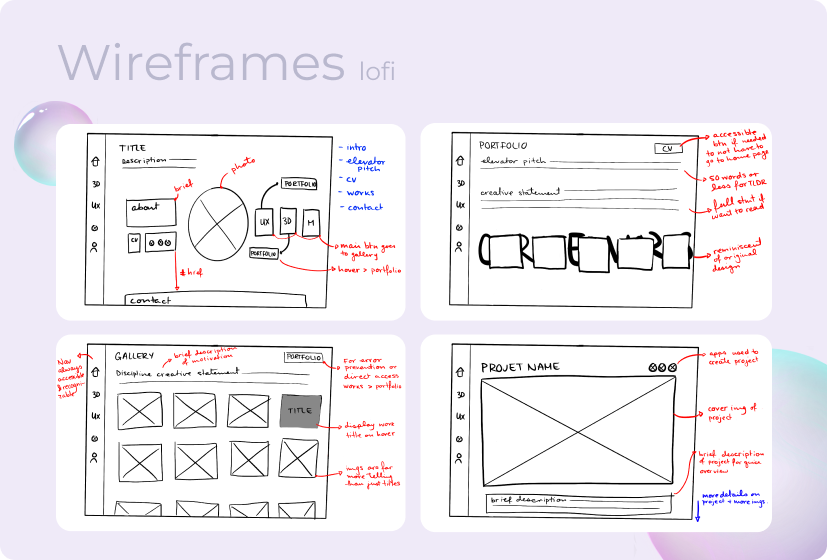 Wireframes lofi
TITLE
Description
brief
photo
about
CV
UX
3D
M
PORTFOLIO
PORTFOLIO
# href
contact
3D
UX
- intro
- elevator
pitch
- CV
- works
- contact
main btn goes
to gallery
hover > portfolio
PORTFOLIO
CV
elevator pitch
creative statement
3D
UX
accessible
btn if needed
to not have to
go to home page
50 words or
less for TLDR
full stmt if
want to read
reminiscent
of original
design
Nav
always
accessible
GALLERY
brief description
of motivation
PORTFOLIO
Discipline creative statement
3D
UX
TITLE
For error
prevention or
direct access
works > portfolio
display work
title on hover
imgs are far
more telling
than just titles
PROJET NAME
3D
UX
brief description
apps used to
create project
cover img of
project
brief description
of project for quick
overview
more details on
project + more imgs.